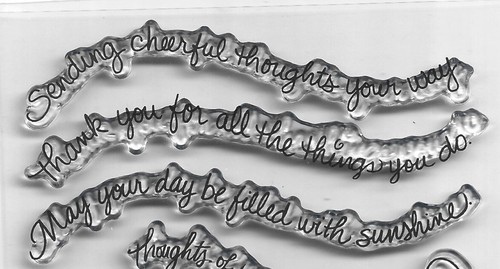 Sending cheerful thoughts your way
thank you for all the things you do.
May your day be filled with sunshine.
thoughts of